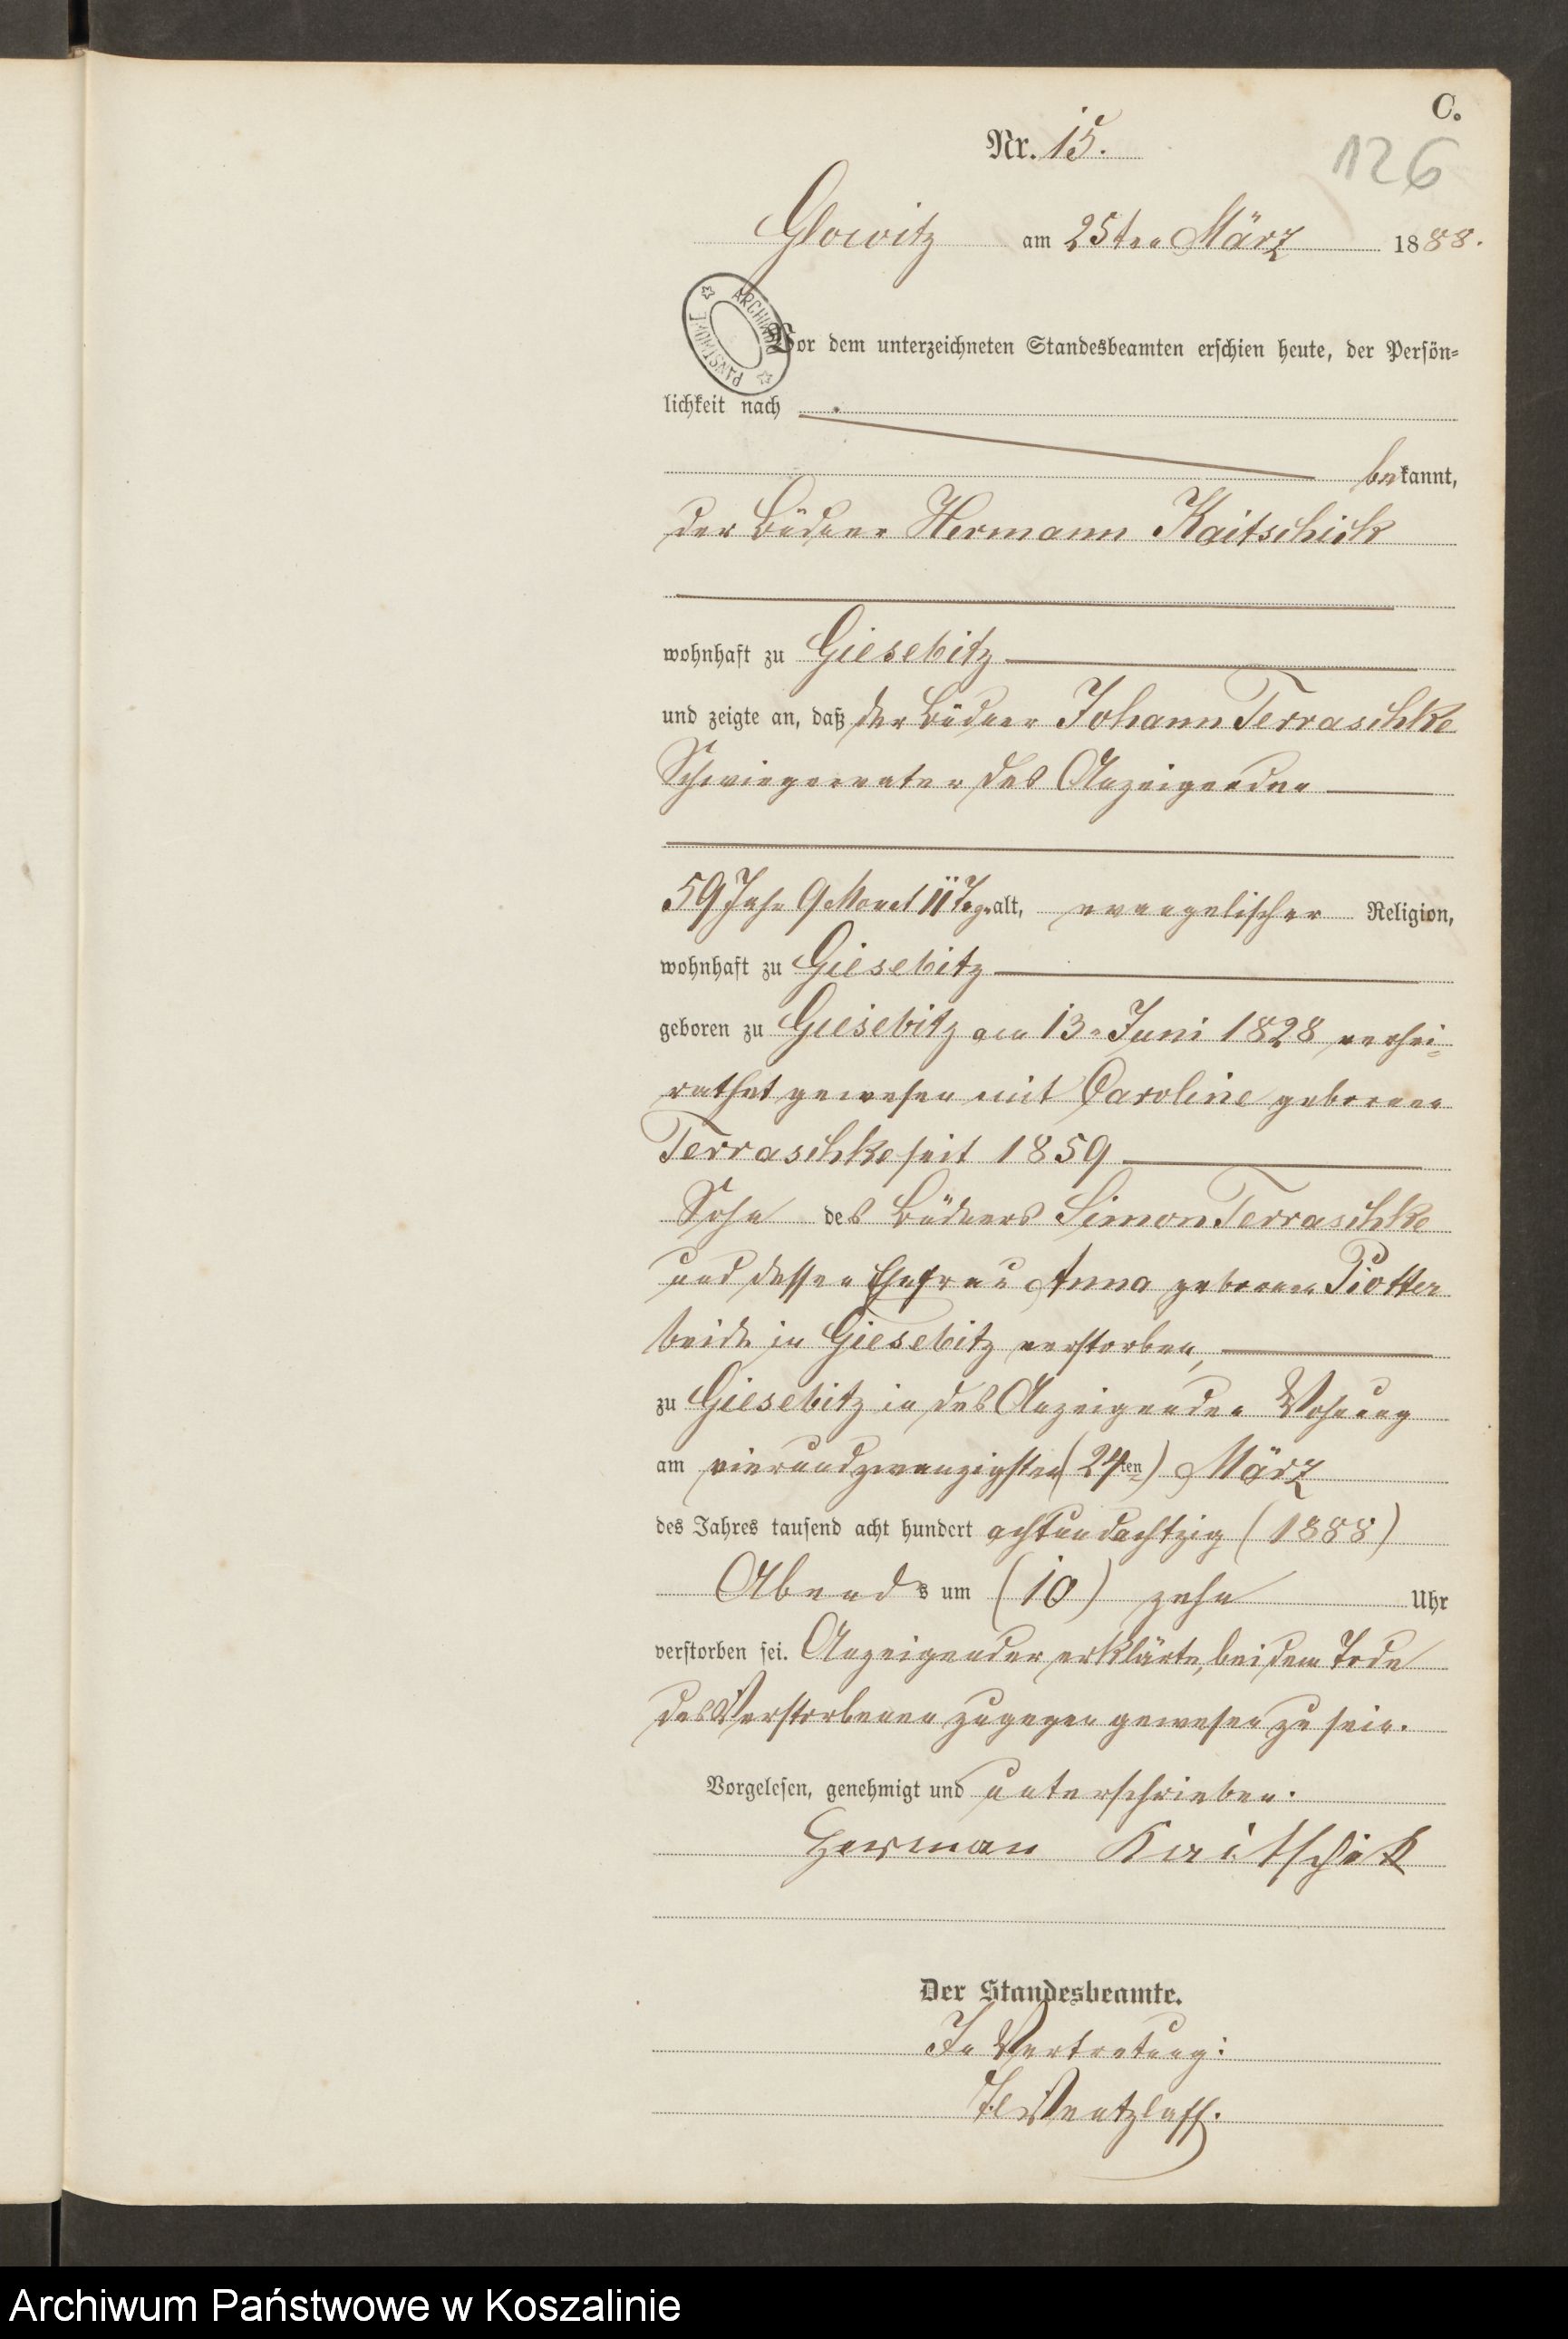 C.
Nr. 15.
126
Glowitz am 25ten März 1888.
ARCHIWUM PAŃSTWOWE
Vor dem unterzeichneten Standesbeamten erschien heute, der Persön-
lichkeit nach
bekannt,
der Büdner Hermann Kaitschick
wohnhaft zu Giesebitz
und zeigte an, daß der Büdner Johann Terraschke
Schwiegervater des Anzeigenden
59 Jahr 9 Monat 11 Tage alt, evangelischer Religion,
wohnhaft zu Giesebitz
geboren zu Giesebitz am 13n Juni 1828 verhei-
rathet gewesen mit Caroline geborene
Terraschke seit 1859
Sohn des Büdners Simon Terraschke
und dessen Ehefrau Anna geborene Piotter
beide in Giesebitz verstorben,
zu Giesebitz in des Anzeigenden Wohnung
am vierundzwanzigsten (24ten) März
des Jahres tausend acht hundert achtundachtzig (1888)
Abends um (10) zehn Uhr
verstorben sei. Anzeigender erklärte, bei dem Tode
des Verstorbenen zugegen gewesen zu sein.
Vorgelesen, genehmigt und unterschrieben.
Herman Kaitschik
Der Standesbeamte.
In Vertretung:
Wentzlaff.
Archiwum Państwowe w Koszalinie